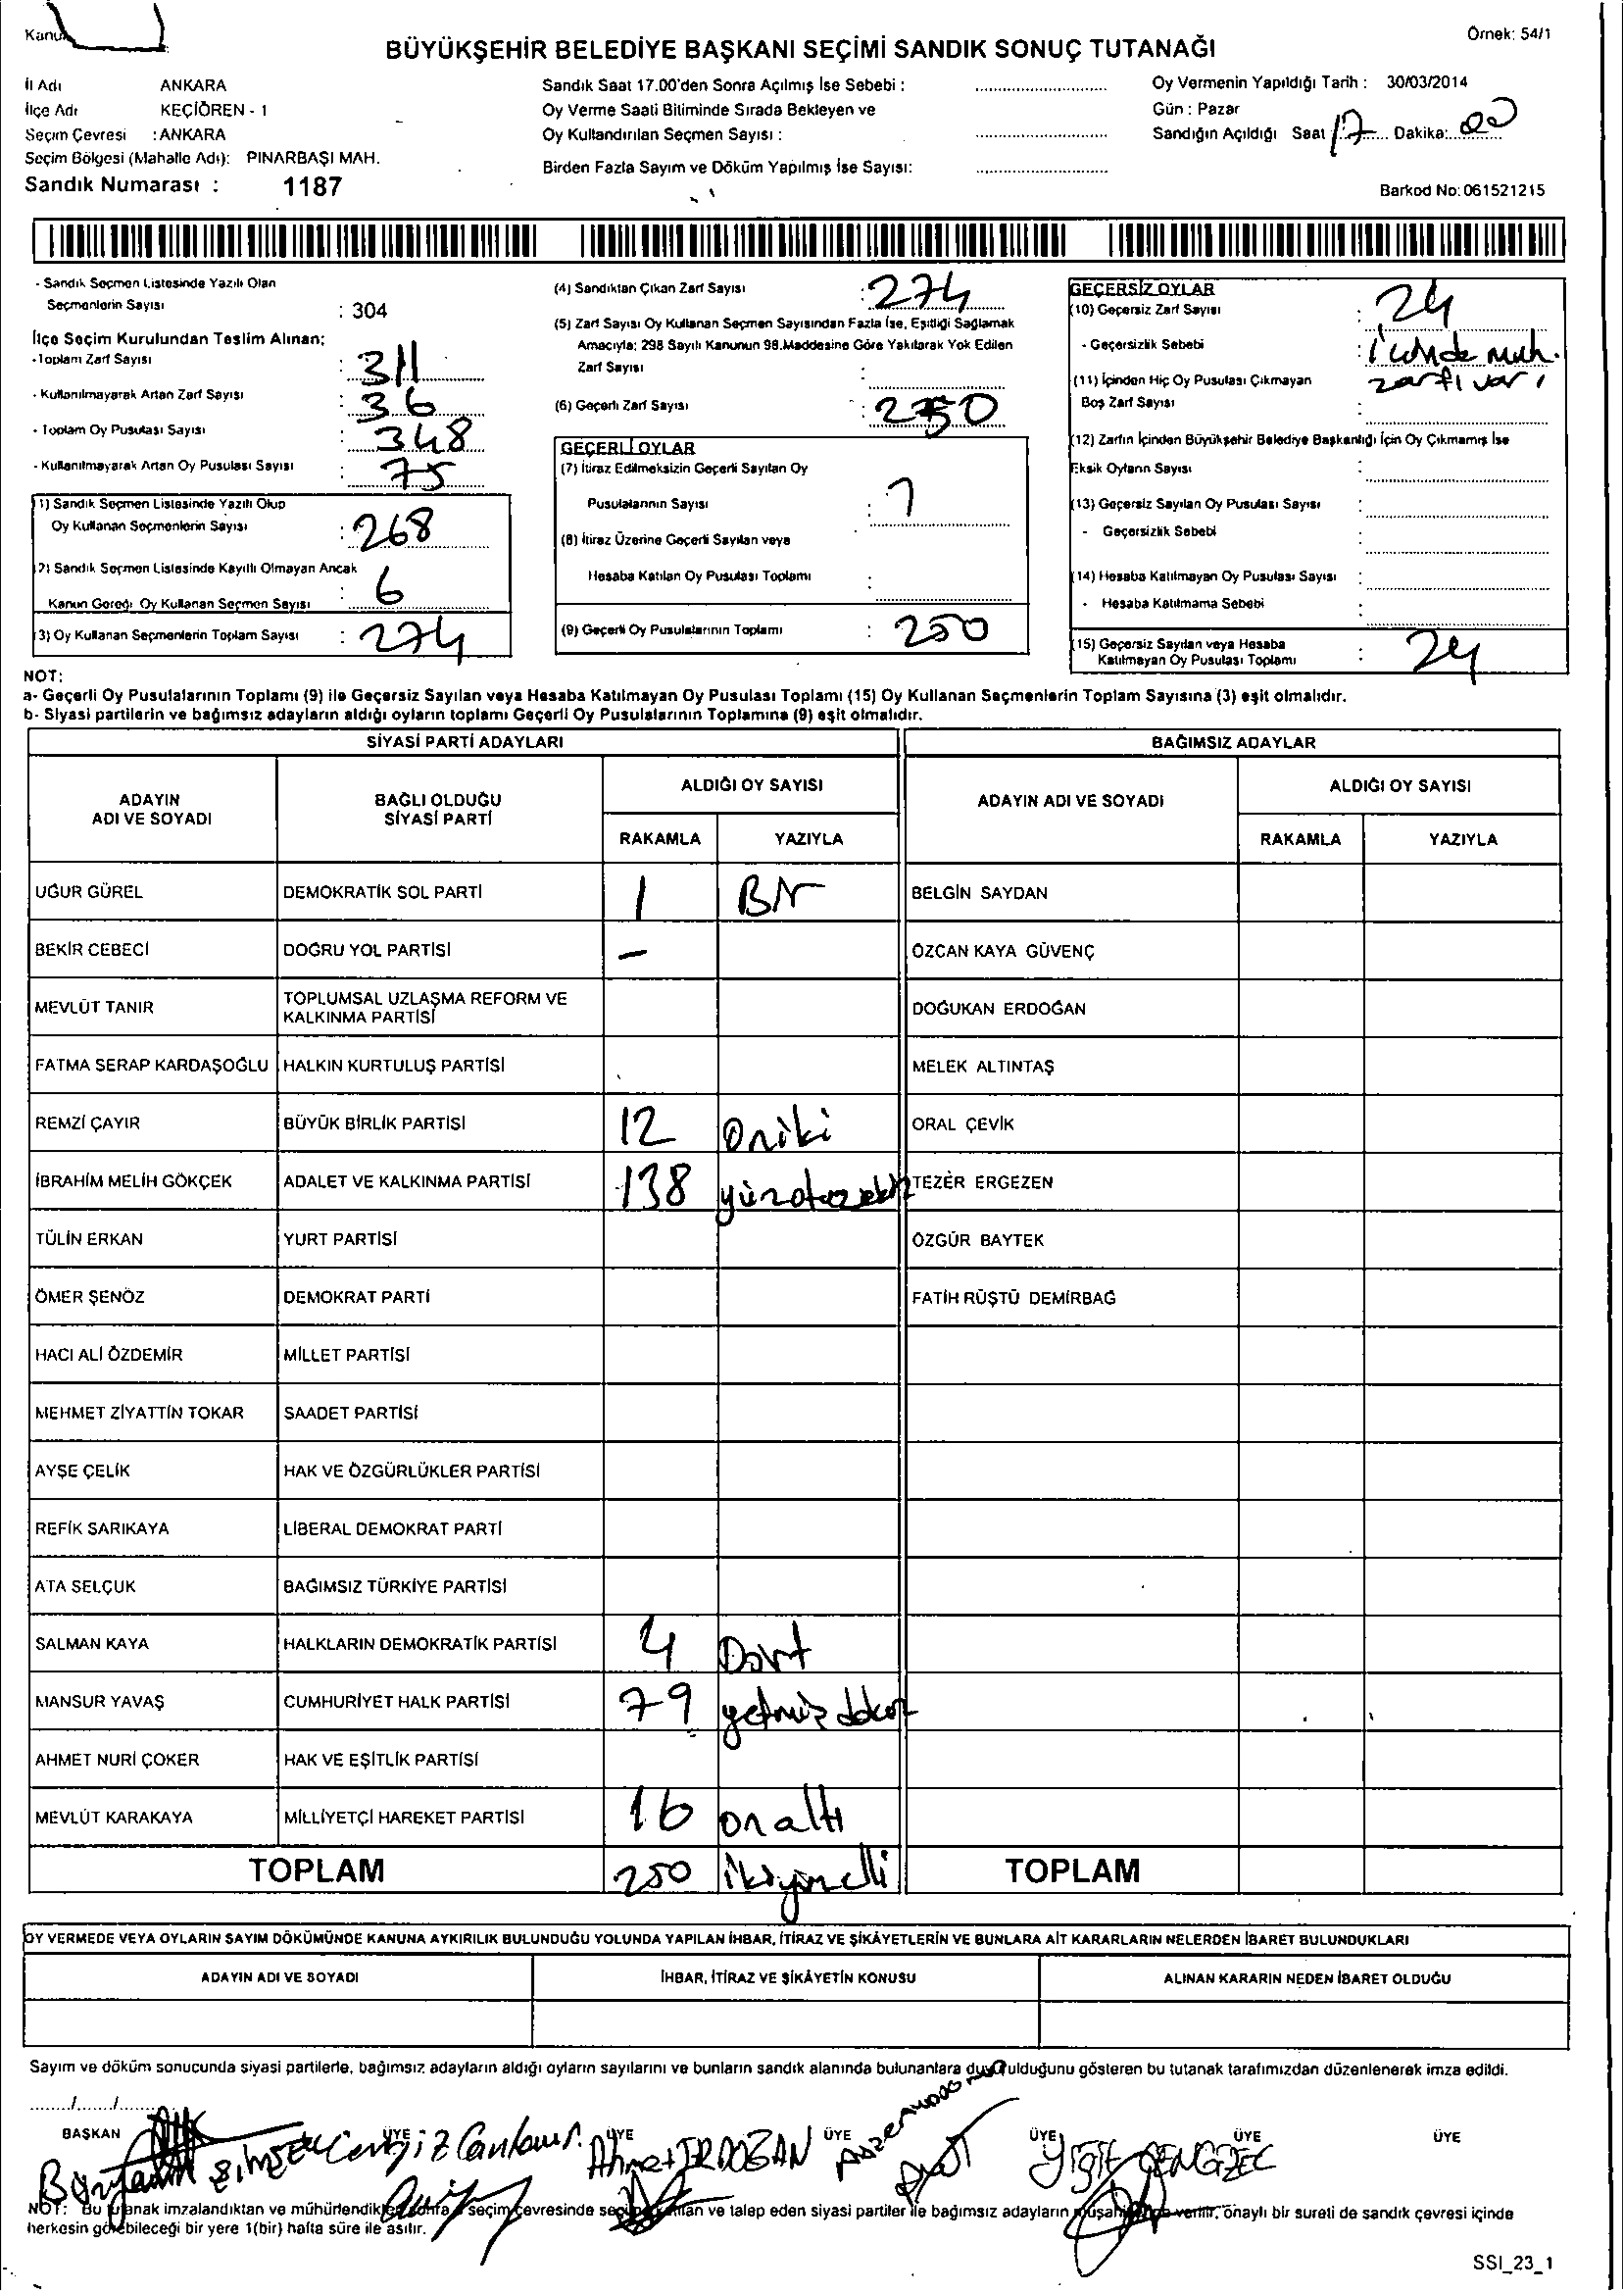 Örnek: 54/1
BÜYÜKŞEHİR BELEDİYE BAŞKANI SEÇİMİ SANDIK SONUÇ TUTANAĞI
İl Adı ANKARA
İlçe Adı KEÇİÖREN - 1
Seçim Çevresi : ANKARA
Seçim Bölgesi (Mahalle Adı): PINARBAŞI MAH.
Sandık Numarası : 1187
Sandık Saat 17.00'den Sonra Açılmış İse Sebebi :
Oy Verme Saati Bitiminde Sırada Bekleyen ve
Oy Kullandırılan Seçmen Sayısı :
Birden Fazla Sayım ve Döküm Yapılmış İse Sayısı:
Oy Vermenin Yapıldığı Tarih : 30/03/2014
Gün : Pazar
Sandığın Açıldığı Saat 17 Dakika: 00
Barkod No: 061521215
- Sandık Seçmen Listesinde Yazılı Olan
Seçmenlerin Sayısı : 304
İlçe Seçim Kurulundan Teslim Alınan;
- Toplam Zarf Sayısı : 311
- Kullanılmayarak Artan Zarf Sayısı : 36
- Toplam Oy Pusulası Sayısı : 348
- Kullanılmayarak Artan Oy Pusulası Sayısı : 75
(1) Sandık Seçmen Listesinde Yazılı Olup
Oy Kullanan Seçmenlerin Sayısı : 268
(2) Sandık Seçmen Listesinde Kayıtlı Olmayan Ancak
Kanun Gereği Oy Kullanan Seçmen Sayısı : 6
(3) Oy Kullanan Seçmenlerin Toplam Sayısı : 274
(4) Sandıktan Çıkan Zarf Sayısı : 274
(5) Zarf Sayısı Oy Kullanan Seçmen Sayısından Fazla İse, Eşitliği Sağlamak
Amacıyla; 298 Sayılı Kanunun 98.Maddesine Göre Yakılarak Yok Edilen
Zarf Sayısı :
(6) Geçerli Zarf Sayısı : 250
GEÇERLİ OYLAR
(7) İtiraz Edilmeksizin Geçerli Sayılan Oy
Pusulalarının Sayısı : 1
(8) İtiraz Üzerine Geçerli Sayılan veya
Hesaba Katılan Oy Pusulası Toplamı :
(9) Geçerli Oy Pusulalarının Toplamı : 250
GEÇERSİZ OYLAR
(10) Geçersiz Zarf Sayısı : 24
- Geçersizlik Sebebi : içinde muh.
zarfı var
(11) İçinden Hiç Oy Pusulası Çıkmayan
Boş Zarf Sayısı :
(12) Zarfın İçinden Büyükşehir Belediye Başkanlığı İçin Oy Çıkmamış İse
Eksik Oyların Sayısı :
(13) Geçersiz Sayılan Oy Pusulası Sayısı :
- Geçersizlik Sebebi :
(14) Hesaba Katılmayan Oy Pusulası Sayısı :
- Hesaba Katılmama Sebebi :
(15) Geçersiz Sayılan veya Hesaba
Katılmayan Oy Pusulası Toplamı : 24
NOT:
a- Geçerli Oy Pusulalarının Toplamı (9) ile Geçersiz Sayılan veya Hesaba Katılmayan Oy Pusulası Toplamı (15) Oy Kullanan Seçmenlerin Toplam Sayısına (3) eşit olmalıdır.
b- Siyasi partilerin ve bağımsız adayların aldığı oyların toplamı Geçerli Oy Pusulalarının Toplamına (9) eşit olmalıdır.
SİYASİ PARTİ ADAYLARI BAĞIMSIZ ADAYLAR
ADAYIN ADI VE SOYADI BAĞLI OLDUĞU SİYASİ PARTİ ALDIĞI OY SAYISI RAKAMLA YAZIYLA ADAYIN ADI VE SOYADI ALDIĞI OY SAYISI RAKAMLA YAZIYLA
UĞUR GÜREL DEMOKRATİK SOL PARTİ 1 Bir BELGİN SAYDAN
BEKİR CEBECİ DOĞRU YOL PARTİSİ - ÖZCAN KAYA GÜVENÇ
MEVLÜT TANIR TOPLUMSAL UZLAŞMA REFORM VE KALKINMA PARTİSİ DOĞUKAN ERDOĞAN
FATMA SERAP KARDAŞOĞLU HALKIN KURTULUŞ PARTİSİ MELEK ALTINTAŞ
REMZİ ÇAYIR BÜYÜK BİRLİK PARTİSİ 12 Oniki ORAL ÇEVİK
İBRAHİM MELİH GÖKÇEK ADALET VE KALKINMA PARTİSİ 138 yüzotuzsekiz TEZER ERGEZEN
TÜLİN ERKAN YURT PARTİSİ ÖZGÜR BAYTEK
ÖMER ŞENÖZ DEMOKRAT PARTİ FATİH RÜŞTÜ DEMİRBAĞ
HACI ALİ ÖZDEMİR MİLLET PARTİSİ
MEHMET ZİYATTİN TOKAR SAADET PARTİSİ
AYŞE ÇELİK HAK VE ÖZGÜRLÜKLER PARTİSİ
REFİK SARIKAYA LİBERAL DEMOKRAT PARTİ
ATA SELÇUK BAĞIMSIZ TÜRKİYE PARTİSİ
SALMAN KAYA HALKLARIN DEMOKRATİK PARTİSİ 4 Dört
MANSUR YAVAŞ CUMHURİYET HALK PARTİSİ 79 yetmiş dokuz
AHMET NURİ ÇOKER HAK VE EŞİTLİK PARTİSİ
MEVLÜT KARAKAYA MİLLİYETÇİ HAREKET PARTİSİ 16 onaltı
TOPLAM 250 ikiyüzelli TOPLAM
OY VERMEDE VEYA OYLARIN SAYIM DÖKÜMÜNDE KANUNA AYKIRILIK BULUNDUĞU YOLUNDA YAPILAN İHBAR, İTİRAZ VE ŞİKÂYETLERİN VE BUNLARA AİT KARARLARIN NELERDEN İBARET BULUNDUKLARI
ADAYIN ADI VE SOYADI İHBAR, İTİRAZ VE ŞİKÂYETİN KONUSU ALINAN KARARIN NEDEN İBARET OLDUĞU
Sayım ve döküm sonucunda siyasi partilerle, bağımsız adayların aldığı oyların sayılarını ve bunların sandık alanında bulunanlara duyurulduğunu gösteren bu tutanak tarafımızdan düzenlenerek imza edildi.
....../....../......
BAŞKAN ÜYE ÜYE ÜYE ÜYE ÜYE ÜYE
Ahmet ERDOĞAN Yiğit
NOT: Bu tutanak imzalandıktan ve mühürlendikten sonra seçim çevresinde ve talep eden siyasi partiler ile bağımsız adayların verilir, onaylı bir sureti de sandık çevresi içinde
herkesin görebileceği bir yere 1(bir) hafta süre ile asılır.
SSI_23_1